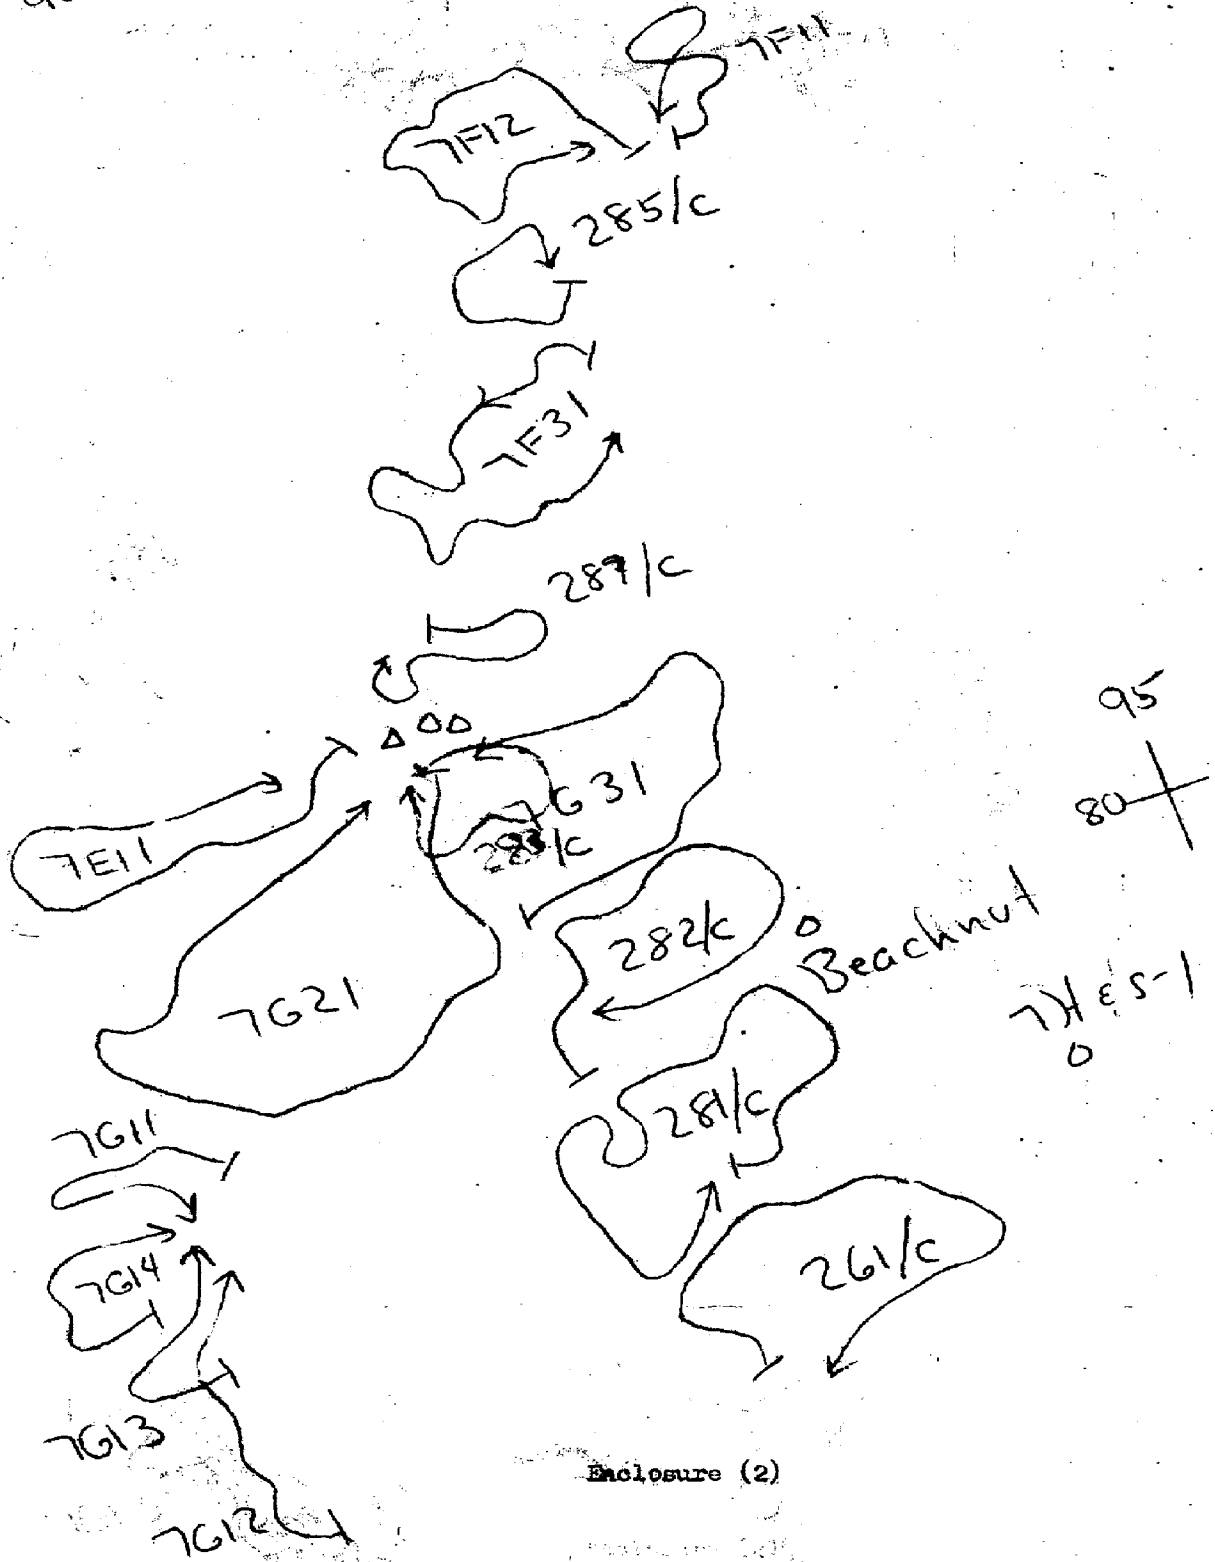 7F11
7F12
285/C
7F31
287/C
95
80
7G31
283/C
7E11
282/C
Beachnut
7H&S-1
7G21
281/C
7G11
261/C
7G14
7G13
Enclosure (2)
7G12